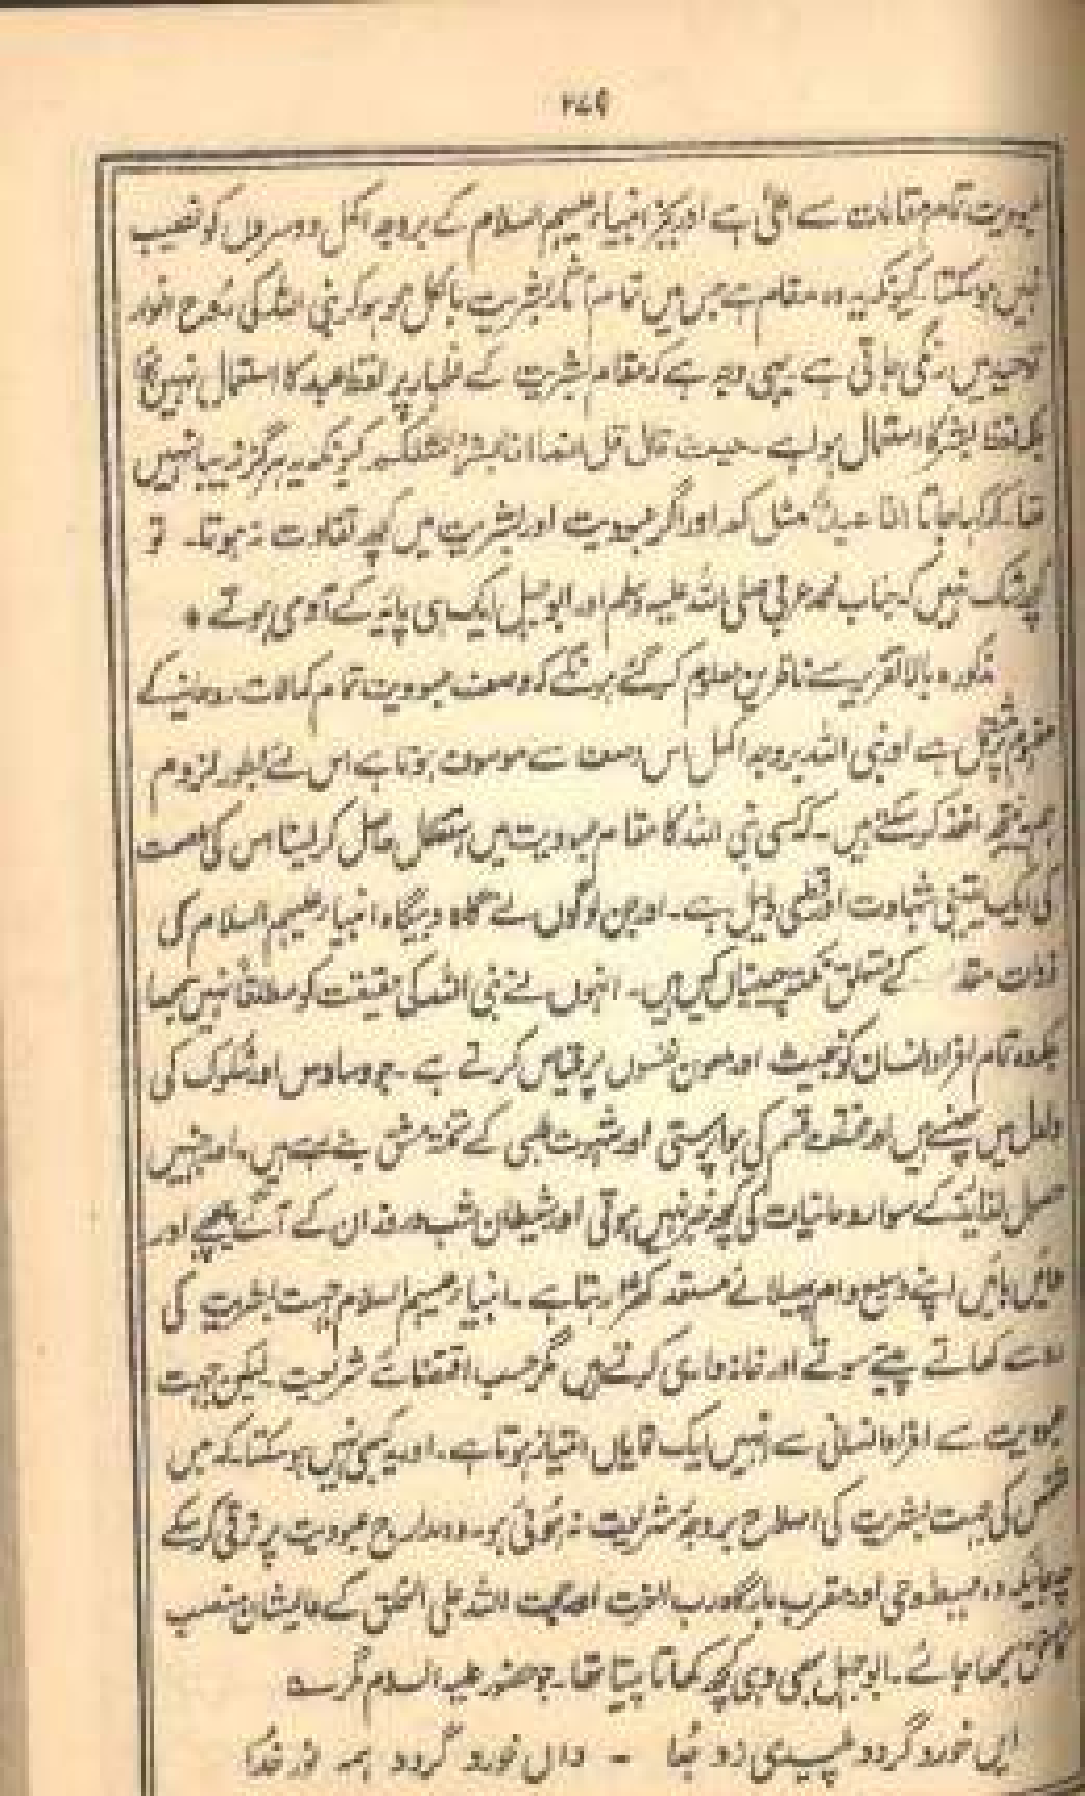 ۲۷۹
عبودیت تمام مقامات سے اعلیٰ ہے اور بجز انبیاء علیہم السلام کے بروجہ اکمل دوسروں کو نصیب
نہیں ہوسکتا۔ کیونکہ یہ وہ مقام ہے جس میں تمام آثار بشریت بالکل محو ہوکر نبی اللہ کی روح انوار
توحید میں رنگی جاتی ہے یہی وجہ ہے کہ مقام بشریت کے اظہار پر لفظ عبد کا استعمال نہیں ہوا
بلکہ لفظ بشر کا استعمال ہوا ہے۔ حیث قال قل انما انا بشر مثلکم کیونکہ یہ ہرگز زیبا نہیں
تھا۔ کہ کہا جاتا انا عبد مثلکم اور اگر عبودیت اور بشریت میں کچھ تفاوت نہ ہوتا۔ تو
کچھ شک نہیں کہ جناب محمد عربی صلی اللہ علیہ وسلم اور ابوجہل ایک ہی پایہ کے آدمی ہوتے *
مذکورہ بالا تقریر سے ناظرین معلوم کر گئے ہونگے کہ وصف عبودیت تمام کمالات روحانیہ کے
مفہوم پر مشتمل ہے اور نبی اللہ بروجہ اکمل اس وصف سے موصوف ہوتا ہے اس لئے بطور لزوم
ہم یہ نتیجہ اخذ کرسکتے ہیں۔ کہ کسی نبی اللہ کا مقام عبودیت میں استکمال حاصل کرلینا اس کی عصمت
کی ایک یقینی شہادت اور قطعی دلیل ہے۔ اور جن لوگوں نے گاہ و بیگاہ انبیاء علیہم السلام کی
ذوات مقد کے متعلق نکتہ چینیاں کیں ہیں۔ انہوں نے نبی اللہ کی حقیقت کو مطلقاً نہیں سمجھا
بلکہ وہ تمام افراد انسان کو خبیث اور ملعون نفسوں پر قیاس کرتے ہے۔ جو وساوس اور شکوک کی
دلدل میں پھنسے ہیں اور مختلف قسم کی ہوا پرستی اور شہوت طلبی کے تختہ مشق بنے رہتے ہیں۔ اور جنہیں
حصول لذایذ کے سوا روحانیات کی کچھ خبر نہیں ہوتی اور شیطان شب و روز ان کے آگے پیچھے اور
دائیں بائیں اپنے وسیع دام پھیلائے مستعد کھڑا رہتا ہے۔ انبیاء علیہم السلام جہت بشریت کی
رو سے کھاتے پیتے سوتے اور خانہ داری کرتے ہیں مگر حسب اقتضائے شریعت۔ لیکن جہت
عبودیت سے افراد انسانی سے انہیں ایک نمایاں امتیاز ہوتا ہے۔ اور یہ کبھی نہیں ہوسکتا۔ کہ جس
شخص کی جہت بشریت کی اصلاح بروجہ شریعت نہ ہوئی ہو۔ وہ مدارج عبودیت پر ترقی کرسکے
چہ جائیکہ وہ مہبط وحی اور مقرب بارگاہ رب العزت اور حجت اللہ علی الخلق کے عالیشان منصب
کا مستحق سمجھا جائے۔ ابوجہل بھی وہی کچھ کھاتا پیتا تھا۔ جو حضور علیہ السلام مگر ؎
ایں خورد گردد پلیدی زو جُدا - واں خورد گردد ہمہ نور خُدا